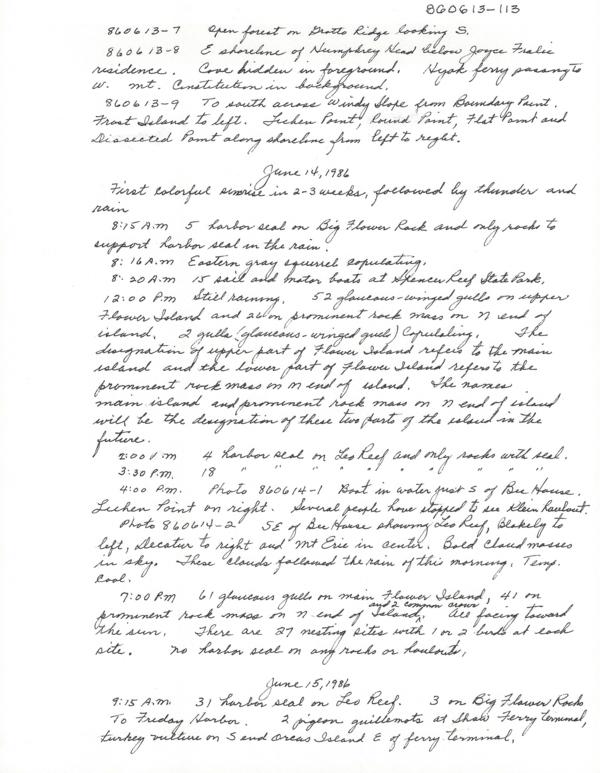 860613-113
860613-7 Open forest on Grotto Ridge looking S.
860613-8 E shoreline of Humphrey Head below Joyce Fralic
residence. Cove hidden in foreground. Hyak ferry passing to
W. Mt. Constitution in background.
860613-9 To south across Windy Slope from Boundary Point.
Frost Island to left. Lichen Point, Round Point, Flat Point and
Dissected Point along shoreline from left to right.
June 14, 1986
First colorful sunrise in 2-3 weeks, followed by thunder and
rain
8:15 A.M 5 harbor seal on Big Flower Rock and only rocks to
support harbor seal in the rain.
8:16 A.M Eastern gray squirrel copulating.
8:20 A.M 15 sail and motor boats at Spencer Reef State Park.
12:00 P.m Still raining. 52 glaucous-winged gulls on upper
Flower Island and 26 on prominent rock mass on N end of
island. 2 gulls (glaucous-winged gull) Copulating. The
designation of upper part of Flower Island refers to the main
island and the lower part of Flower Island refers to the
prominent rock mass on N end of island. The names
main island and prominent rock mass on N end of island
will be the designation of these two parts of the island in the
future.
2:00 P.M 4 harbor seal on Leo Reef and only rocks with seal.
3:30 P.M. 18 " " " " " " " " "
4:00 P.M. Photo 860614-1 Boat in water just S of Bee House.
Lichen Point on right. Several people have stopped to see Klein Haulout.
Photo 860614-2 SE of Bee House showing Leo Reef, Blakely to
left, Decatur to right and Mt Erie in center. Bold cloud masses
in sky. These clouds followed the rain of this morning. Temp.
Cool.
7:00 P.M 61 glaucous gulls on main Flower Island, 41 on
prominent rock mass on N end of Island, and 2 common crows. All facing toward
the sun. There are 27 nesting sites with 1 or 2 birds at each
site. No harbor seal on any rocks or haulouts.
June 15, 1986
9:15 A.M. 31 harbor seal on Leo Reef. 3 on Big Flower Rocks
To Friday Harbor. 2 pigeon guillemots at Shaw Ferry terminal,
turkey vulture on S end Orcas Island E of ferry terminal.